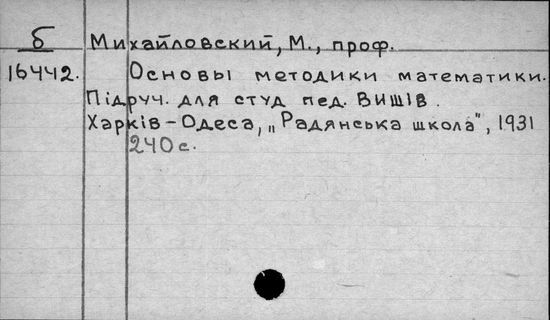 б Михайловский, М., проф.
16442. Основы методики математики.
Підруч. для студ пед. Вишів.
Харків-Одеса, „Радянська школа", 1931
240 с.